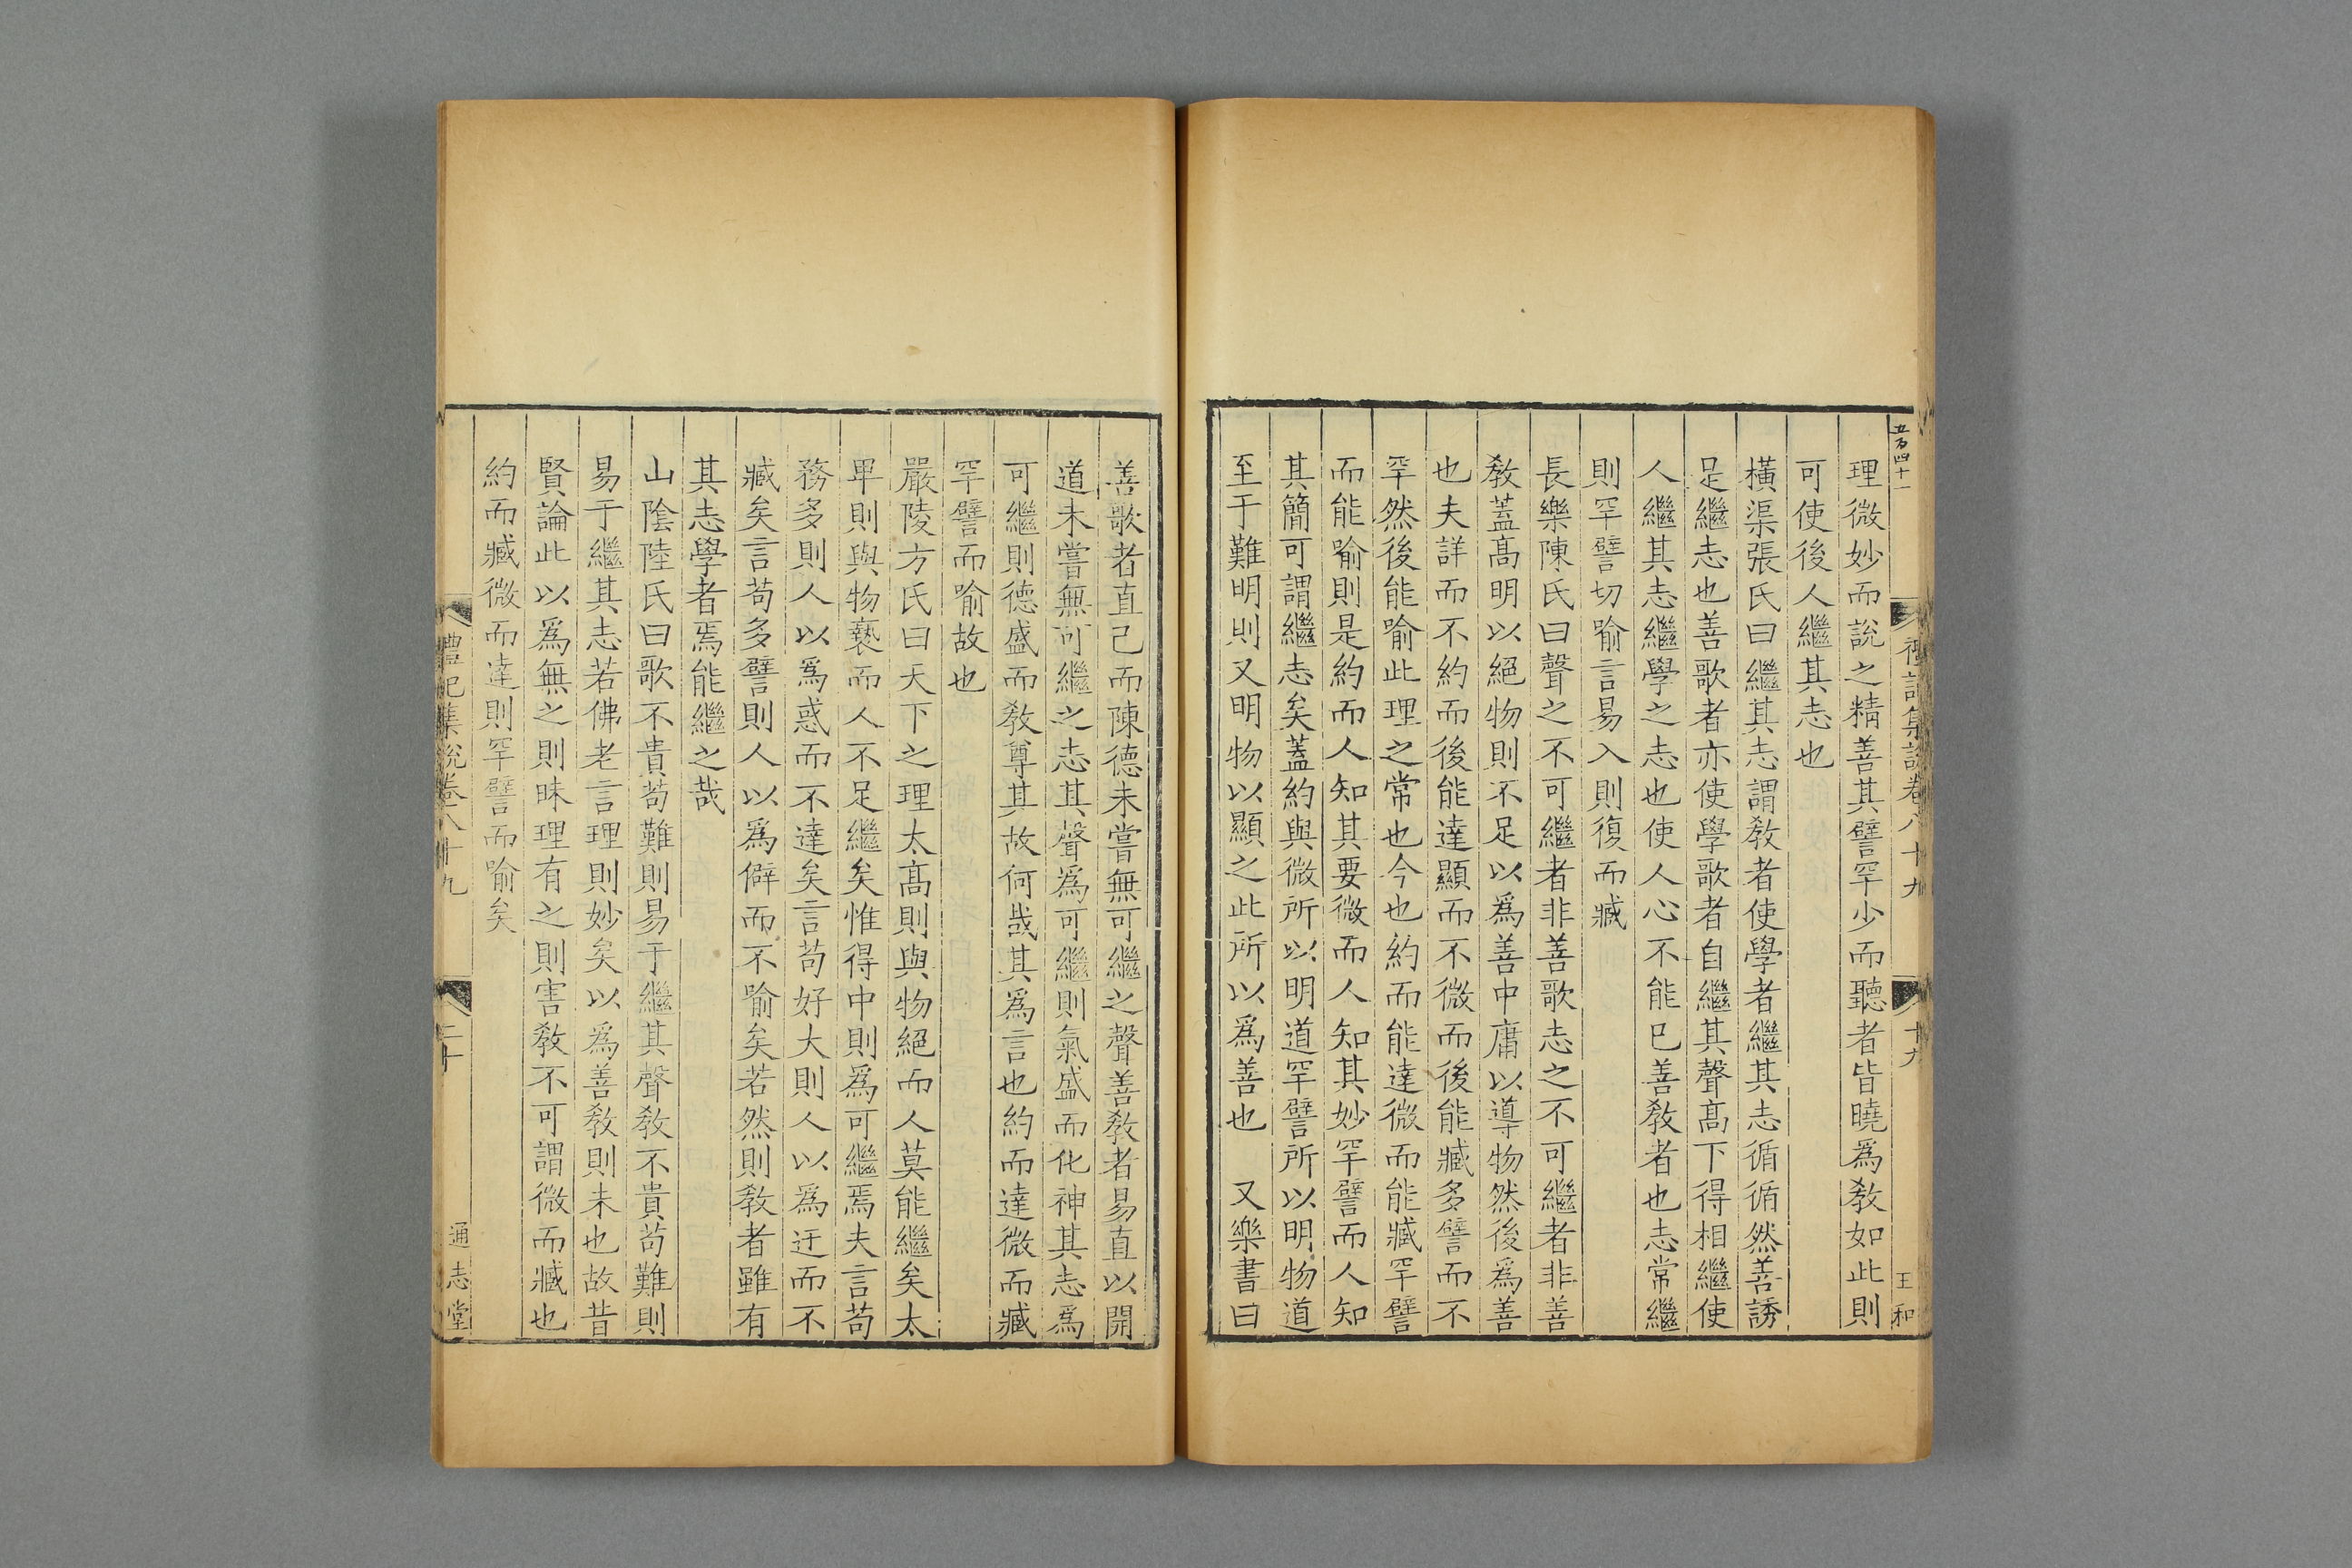 五百四十一
禮記集說卷八十九
十九
王和
理微妙而說之精善其譬罕少而聽者皆曉爲敎如此則
可使後人繼其志也
橫渠張氏曰繼其志謂敎者使學者繼其志循循然善誘
足繼志也善歌者亦使學歌者自繼其聲髙下得相繼使
人繼其志繼學之志也使人心不能已善敎者也志常繼
則罕譬切喻言易入則復而臧
長樂陳氏曰聲之不可繼者非善歌志之不可繼者非善
敎蓋髙明以絕物則不足以爲善中庸以導物然後爲善
也夫詳而不約而後能達顯而不微而後能臧多譬而不
罕然後能喻此理之常也今也約而能達微而能臧罕譬
而能喻則是約而人知其要微而人知其妙罕譬而人知
其簡可謂繼志矣蓋約與微所以明道罕譬所以明物道
至于難明則又明物以顯之此所以爲善也　又樂書曰
善歌者直己而陳德未嘗無可繼之聲善敎者易直以開
道未嘗無可繼之志其聲爲可繼則氣盛而化神其志爲
可繼則德盛而敎尊其故何哉其爲言也約而達微而臧
罕譬而喻故也
嚴陵方氏曰天下之理太髙則與物絕而人莫能繼矣太
卑則與物褻而人不足繼矣惟得中則爲可繼焉夫言苟
務多則人以爲惑而不達矣言苟好大則人以爲迂而不
臧矣言苟多譬則人以爲僻而不喻矣若然則敎者雖有
其志學者焉能繼之哉
山陰陸氏曰歌不貴苟難則易于繼其聲敎不貴苟難則
易于繼其志若佛老言理則妙矣以爲善敎則未也故昔
賢論此以爲無之則昧理有之則害敎不可謂微而臧也
約而臧微而達則罕譬而喻矣
禮記集說卷八十九
二十
通志堂